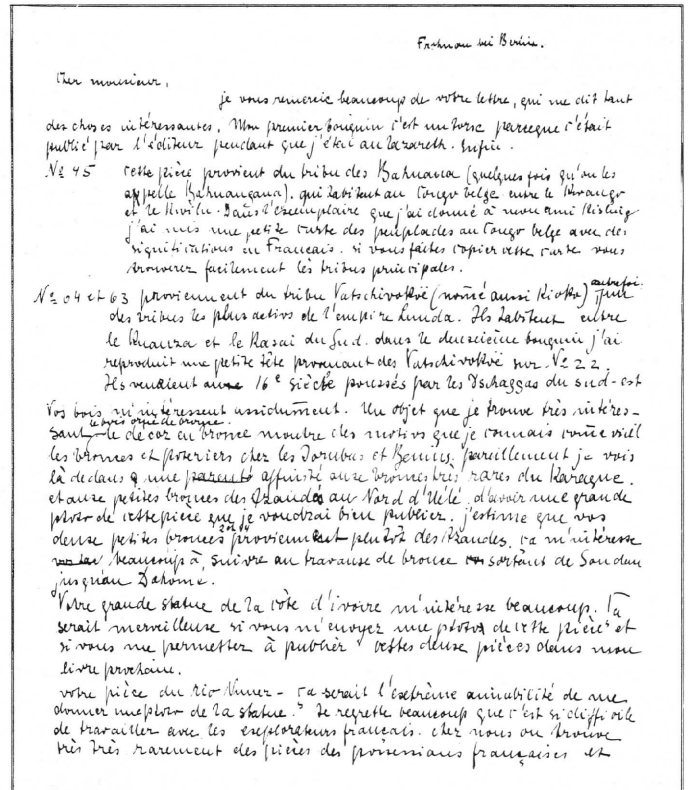 Frohnau bei Berlin.
Cher monsieur,
je vous remercie beaucoup de votre lettre, qui me dit tant
des choses intéressantes. Mon premier bouquin c'est un torse parceque c'était
publié par l'éditeur pendant que j'étai au lazareth. enfin.
№ 45 cette pièce provient du tribu des (quelques fois qu'on les
appelle Bahuangana). qui habitent au Congo belge entre le Kwango
et le Kwilu. Dans l'exemplaire que j'ai donné à mon ami
j'ai mis une petite carte des peuplades au Congo belge avec des
significations en Francais. si vous faites copier cette carte vous
trouverez facilement les tribus principales.
№ 04 et 63 proviennent du tribu Vatschivokoë (nomé aussi Kioko) autrefoi
des tribus les plus activs de l'empire Lunda. Ils habitent entre
le Kuanza et le Kasai du Sud. dans le deuxieime bouquin j'ai
reproduit une petite tête provenant des Vatschivokoë sur № 22.
Ils vendient 16e siècle poussés par les Dschaggas du sud-est
Vos bois m'intéressent assidument. Un objet que je trouve très intéres-
sant le de coz en bronce montre des motivs que je connais come vieil
les bronces et poteriers chez les Dorubas et Benins. pareillement je vois
là dedans une parenté affinité auxe bronces très rares du Karague.
et auxe petites bronces des Azandés au Nord d'Uélé. d'avoir une grande
photo de cette pièce que je voudrai bien publier. j'estime que vos
deuxe petites bronces proviennent plutôt des Azandes. ca m'intéresse
beaucoup à suivre au travauxe de bronce sortant de Soudan
jusqu'au Dahome.
Votre grande statue de la côte d'ivoire m'intéresse beaucoup. Ca
serait merveilleuse si vous m'envoyez une photo de cette pièce et
si vous me permettez à publier cettes deuxe pièces dans mon
livre prochaine.
votre pièce du rio Nunez - ca serait l'extrème aimabilité de me
donner une photo de la statue. Je regrette beaucoup que c'est si difficile
de travailler avec les explorateurs français. chez nous on trouve
très très rarement des pièces des possessions françaises et